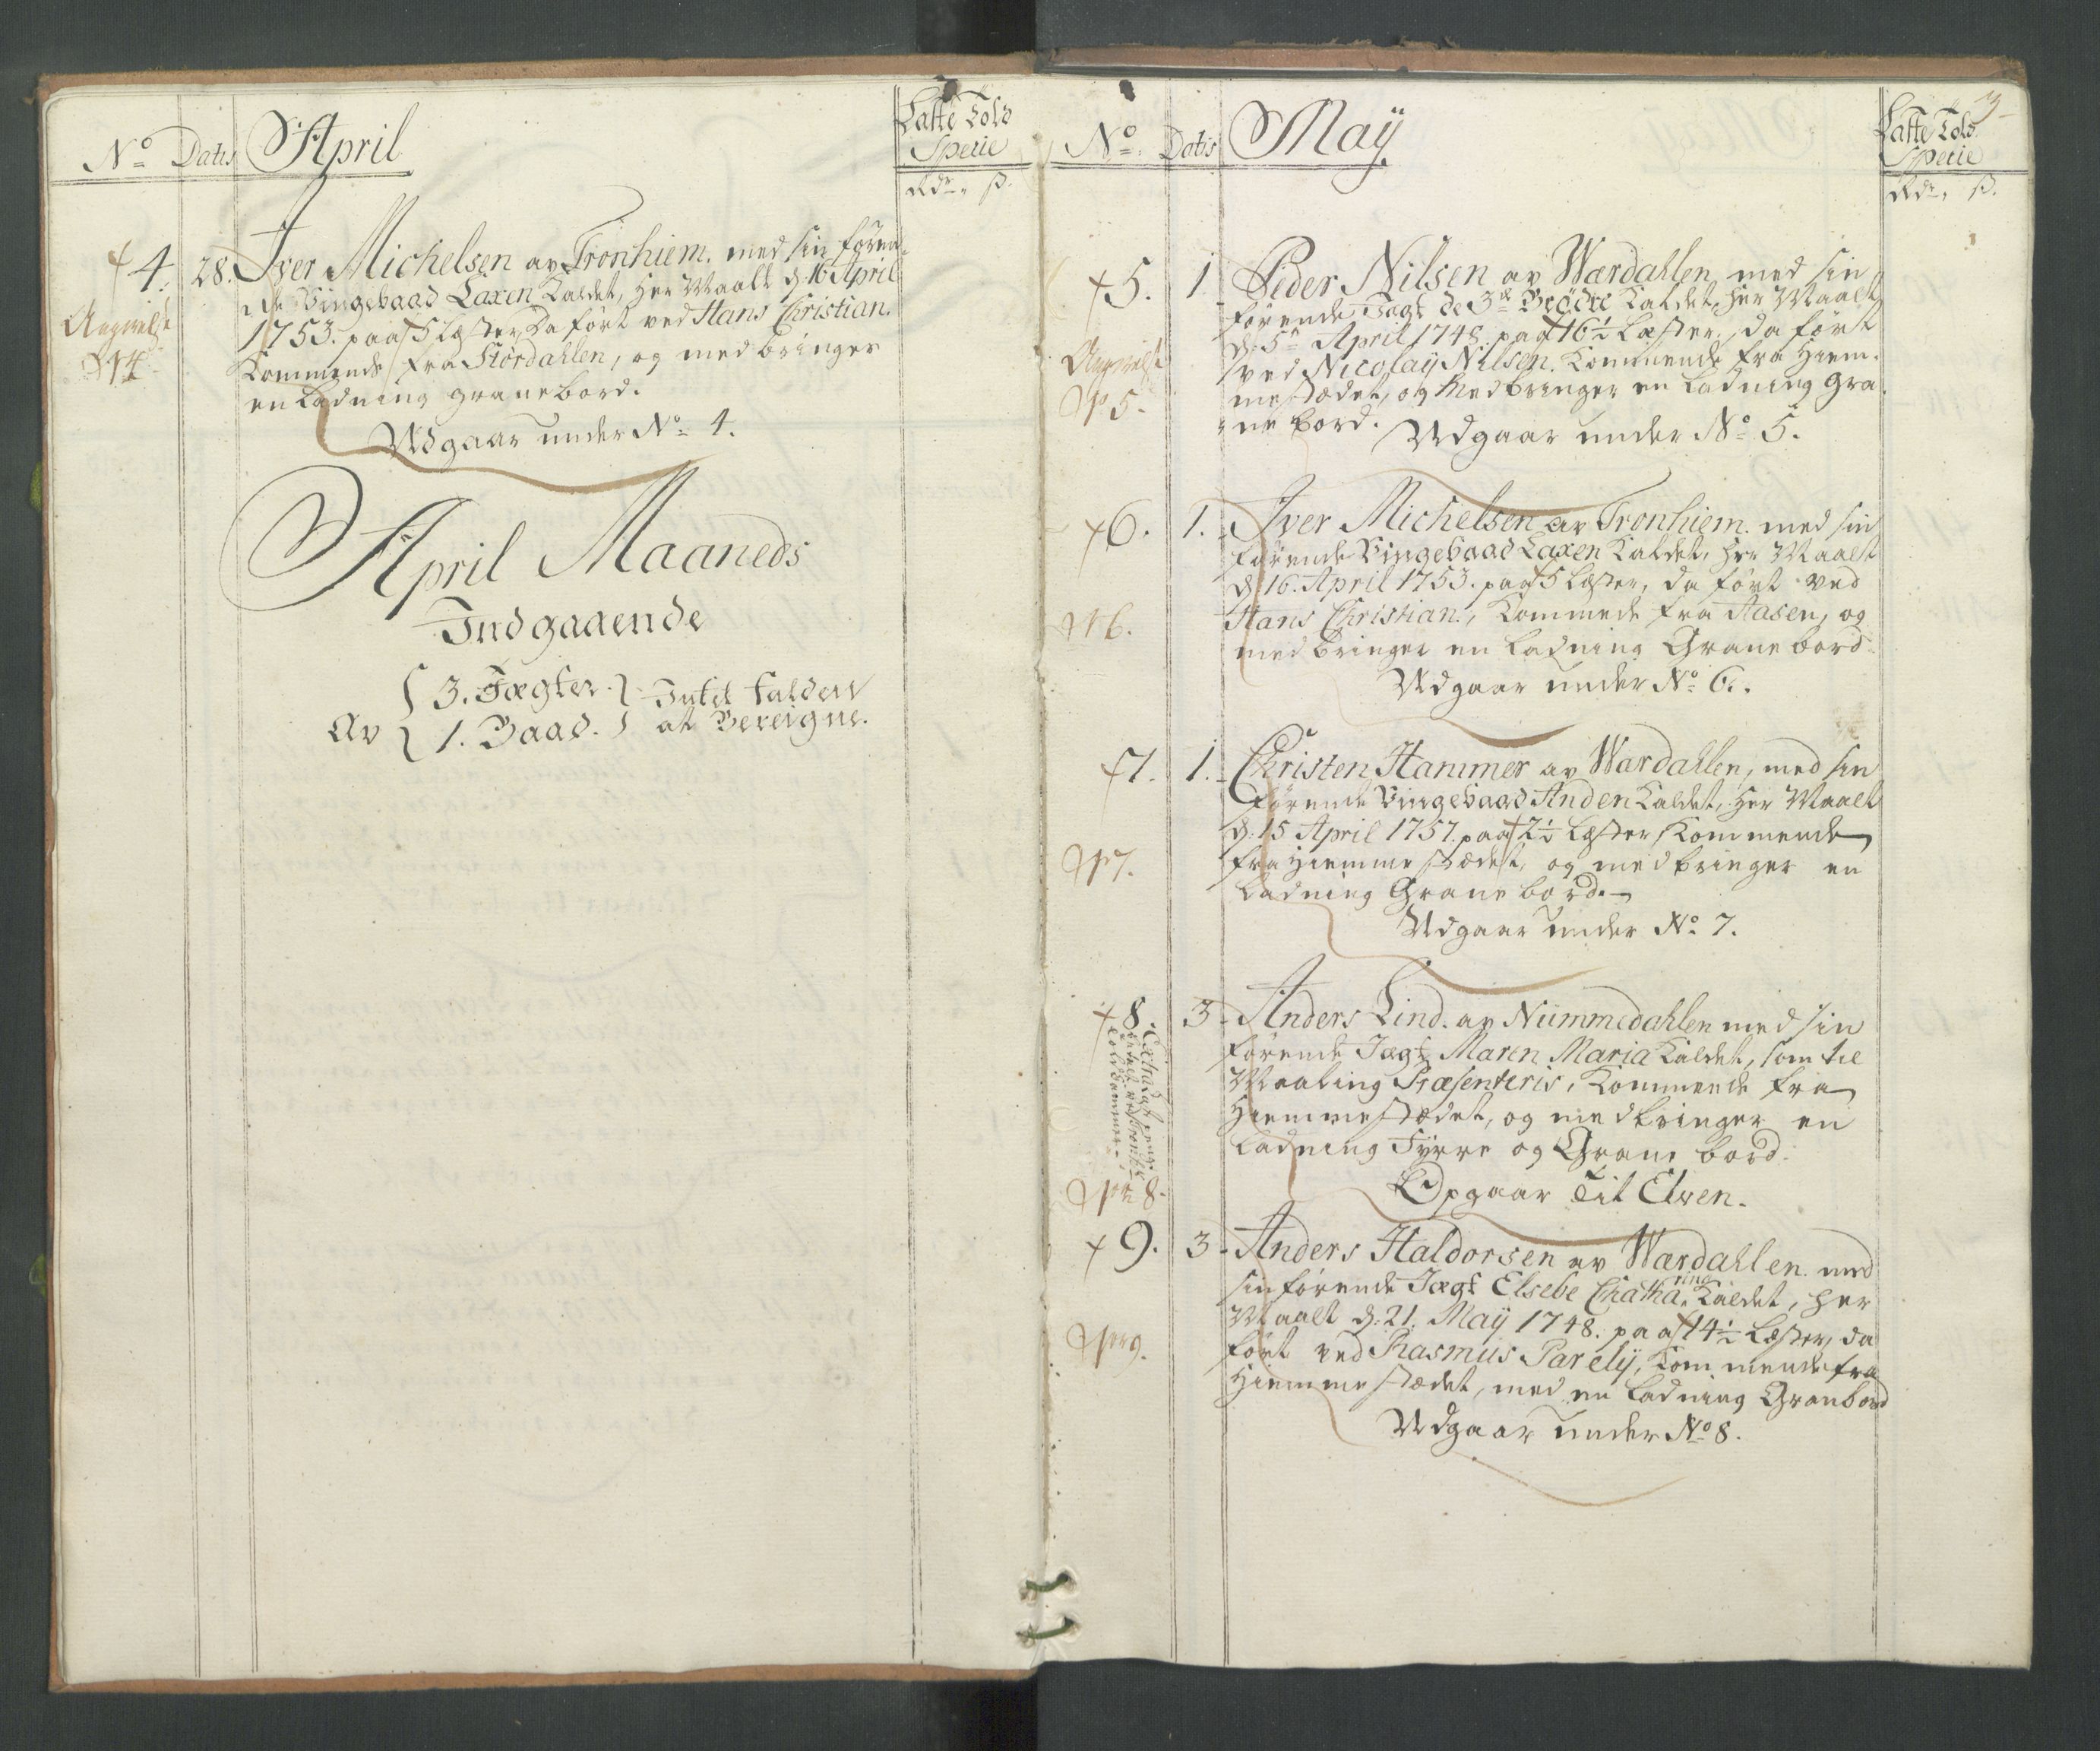 No Datis April Læste Told
Specie
Rdr. ß.
+ 4. 28. Iver Michelsen av Tronhiem. med sin føren-
de Vingebaad Laxen Kaldet, her Maalt d. 16 April
Angivelse 1753. paa 5 Læster, da ført ved Hans Christian.
N 4. Kommende fra Stördahlen, og medbringer
en Ladning granebord.
Udgaar under No 4.
April Maaneds
Indgaaende
Av { 3. Jægter. } Intet falden
{ 1. Baad. } at Bereigne.
No Datis May Læste Told
Specie
Rdr. ß.
+5. 1. Peder Nilsen av Wærdahlen, med sin
förende Jagt de 3de Brödre Kaldet, her Maalt
d. 5te April 1748. paa 16½ Læster, da ført
Angivelse ved Nicolaÿ Nilsen. Kommende fra Hiem-
No 5. mestædet, og medbringer en Ladning gra-
ne bord.
Udgaar under No 5.
+6. 1. Iver Michelsen av Tronhiem. med sin
förende Vingebaad Laxen Kaldet, her Maalt
d. 16. April 1753. paa 5 Læster, da ført ved
N 6. Hans Christian., Kommede fra Aasen, og
medbringer en Ladning Grane bord
Udgaar under No 6.
+7. 1. Christen Hammer av Wardahlen, med sin
förende Vingebaad Anden Kaldet, her Maalt
d. 15 April 1757. paa 2½ Læster, Kommende
N 7. fra Hiemmestædet, og medbringer en
Ladning Grane bord.
Udgaar under No 7.
+8. 3. Anders Lind. av Nummedahlen med sin
förende Jægt Maren Maria Kaldet, som til
Maaling Præsenteris, Kommende fra
Hiemmestædet, og medbringer en
Ladning Fyrre og Grane bord.
Extra
Toldkammer
No 8. Opgaar Til Elven.
+9. 3. Anders Haldorsen av Wærdahlen. med
sin förende Jægt Elsebe Chatharina Kaldet, her
Maalt d. 21. Maÿ 1748. paa 14½ Læster, da
No 9. fört ved Rasmus Parelÿ, Kommende fra
Hiemmestædet, med en Ladning Granbord
Udgaar under No 8.